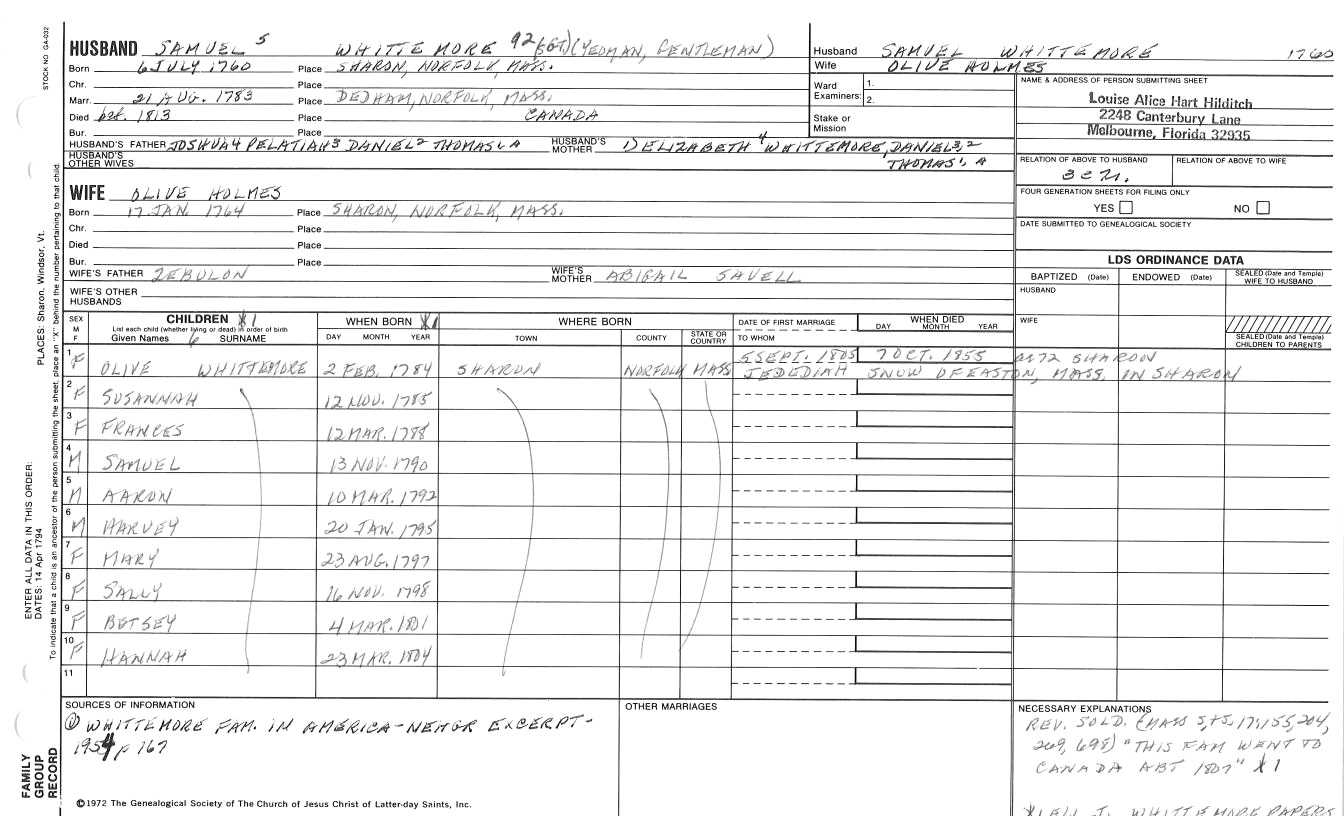 STOCK NO. GA-032
HUSBAND SAMUEL 5 WHITTEMORE 92 (SGT) (YEOMAN, GENTLEMAN)
Born 6 JULY 1760 Place SHARON, NORFOLK, MASS.
Chr. Place
Marr. 21 AUG. 1783 Place DEDHAM, NORFOLK, MASS.
Died bef. 1813 Place CANADA
Bur. Place
HUSBAND'S FATHER JOSHUA4 PELATIAH3 DANIEL2 THOMAS1, A HUSBAND'S MOTHER 1) ELIZABETH 4 WHITTEMORE, DANIEL3,2
HUSBAND'S OTHER WIVES THOMAS1, A
Husband SAMUEL WHITTEMORE 1760
Wife OLIVE HOLMES
Ward Examiners: 1.
2.
Stake or Mission
NAME & ADDRESS OF PERSON SUBMITTING SHEET
Louise Alice Hart Hilditch
2248 Canterbury Lane
Melbourne, Florida 32935
RELATION OF ABOVE TO HUSBAND RELATION OF ABOVE TO WIFE
FOUR GENERATION SHEETS FOR FILING ONLY
YES NO
DATE SUBMITTED TO GENEALOGICAL SOCIETY
WIFE OLIVE HOLMES
Born 17 JAN. 1764 Place SHARON, NORFOLK, MASS.
Chr. Place
Died Place
Bur. Place
WIFE'S FATHER ZEBULON WIFE'S MOTHER ABIGAIL SAVELL
WIFE'S OTHER HUSBANDS
LDS ORDINANCE DATA
BAPTIZED (Date) ENDOWED (Date) SEALED (Date and Temple) WIFE TO HUSBAND
HUSBAND
WIFE
SEALED (Date and Temple) CHILDREN TO PARENTS
SEX M F CHILDREN *1 List each child (whether living or dead) in order of birth Given Names 6 SURNAME
WHEN BORN *1 DAY MONTH YEAR
WHERE BORN TOWN COUNTY STATE OR COUNTRY
DATE OF FIRST MARRIAGE TO WHOM
WHEN DIED DAY MONTH YEAR
1 F OLIVE WHITTEMORE 2 FEB. 1784 SHARON NORFOLK MASS 5 SEPT. 1805 7 OCT. 1855 AE 72 SHARON
JEDEDIAH SNOW OF EASTON, MASS. IN SHARON
2 F SUSANNAH 12 NOV. 1785
3 F FRANCES 12 MAR. 1788
4 M SAMUEL 13 NOV. 1790
5 M AARON 10 MAR. 1792
6 M HARVEY 20 JAN. 1795
7 F MARY 23 AUG. 1797
8 F SALLY 16 NOV. 1798
9 F BETSEY 4 MAR. 1801
10 F HANNAH 23 MAR. 1804
11
SOURCES OF INFORMATION
① WHITTEMORE FAM. IN AMERICA-NEHGR EXCERPT-
1954 p 167
OTHER MARRIAGES
NECESSARY EXPLANATIONS
REV. SOLD. (MASS S,+S, 17:155, 204,
269, 698) "THIS FAM WENT TO
CANADA ABT 1807" *1
WHITTEMORE PAPERS
©1972 The Genealogical Society of The Church of Jesus Christ of Latter-day Saints, Inc.
FAMILY GROUP RECORD
ENTER ALL DATA IN THIS ORDER:
DATES: 14 Apr 1794
PLACES: Sharon, Windsor, Vt.
To indicate that a child is an ancestor of the person submitting the sheet, place an "X" behind the number pertaining to that child.